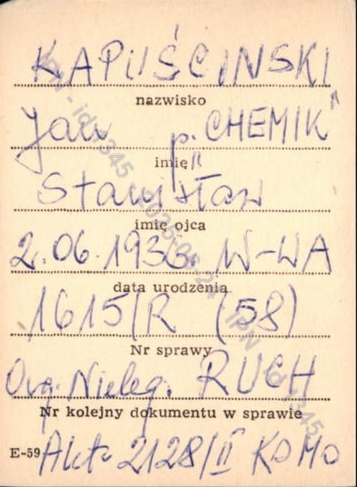 KAPUŚCINSKI
nazwisko
Jan p. „CHEMIK"
imię
Stanisław
imię ojca
2.06.1936. W-WA
data urodzenia
1615/R (58)
Nr sprawy
Org. Nieleg. RUCH
Nr kolejny dokumentu w sprawie
E-59 Akta 2128/II KDMO